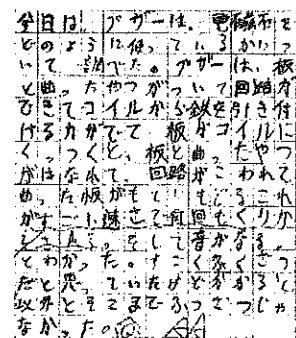 今日は、ブザーは、電磁石を
どのように使っているかにつ
いて調べた。ブザーは、板
と曲ったやつがついて回路が
できてコイルから鉄を引き付
ける力がでて板がコイルに
くっつくと、板と曲ったやつ
がはなれて、回路がこわれて
曲った板がもどる。これ
がすごい速さで何回もくりか
えされる。そして音がなる。
とわかった。すごくふくざつ
だと思っていたけどからくり
以外とそこまでふくざつじゃ
なかった。